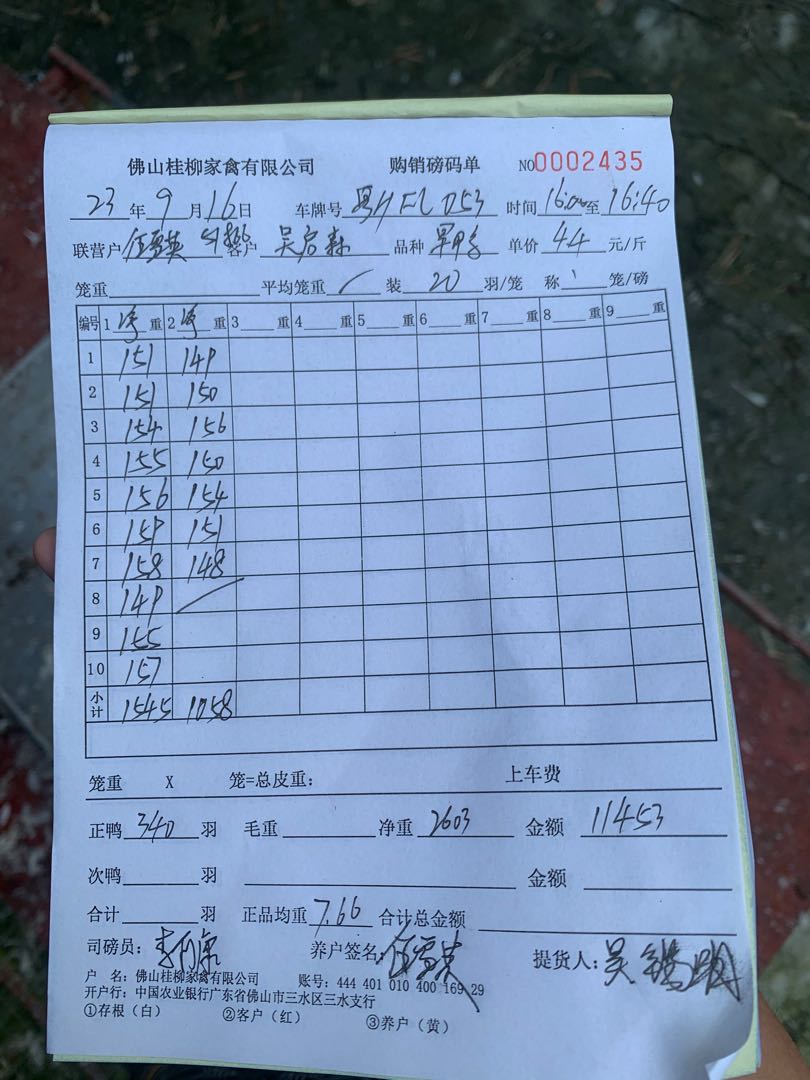 佛山桂柳家禽有限公司 购销磅码单 NO0002435
23 年 9 月 16 日 车牌号 时间 16:00 至 16:40
联营户 伍雪英 客户 吴启森 品种 单价 44 元/斤
笼重 平均笼重 / 装 20 羽/笼 称 笼/磅
编号 1 净 重 2 净 重 3 重 4 重 5 重 6 重 7 重 8 重 9 重
1 151 149
2 151 150
3 154 156
4 155 150
5 156 154
6 159 151
7 158 148
8 149 /
9 155
10 157
小计 1545 1058
笼重 X 笼=总皮重: 上车费
正鸭 340 羽 毛重 净重 2603 金额 11453
次鸭 羽 金额
合计 羽 正品均重 7.66 合计总金额
司磅员: 养户签名: 伍雪英 提货人: 吴
户 名: 佛山桂柳家禽有限公司 账号: 444 401 010 400 169 29
开户行: 中国农业银行广东省佛山市三水区三水支行
①存根（白） ②客户（红） ③养户（黄）